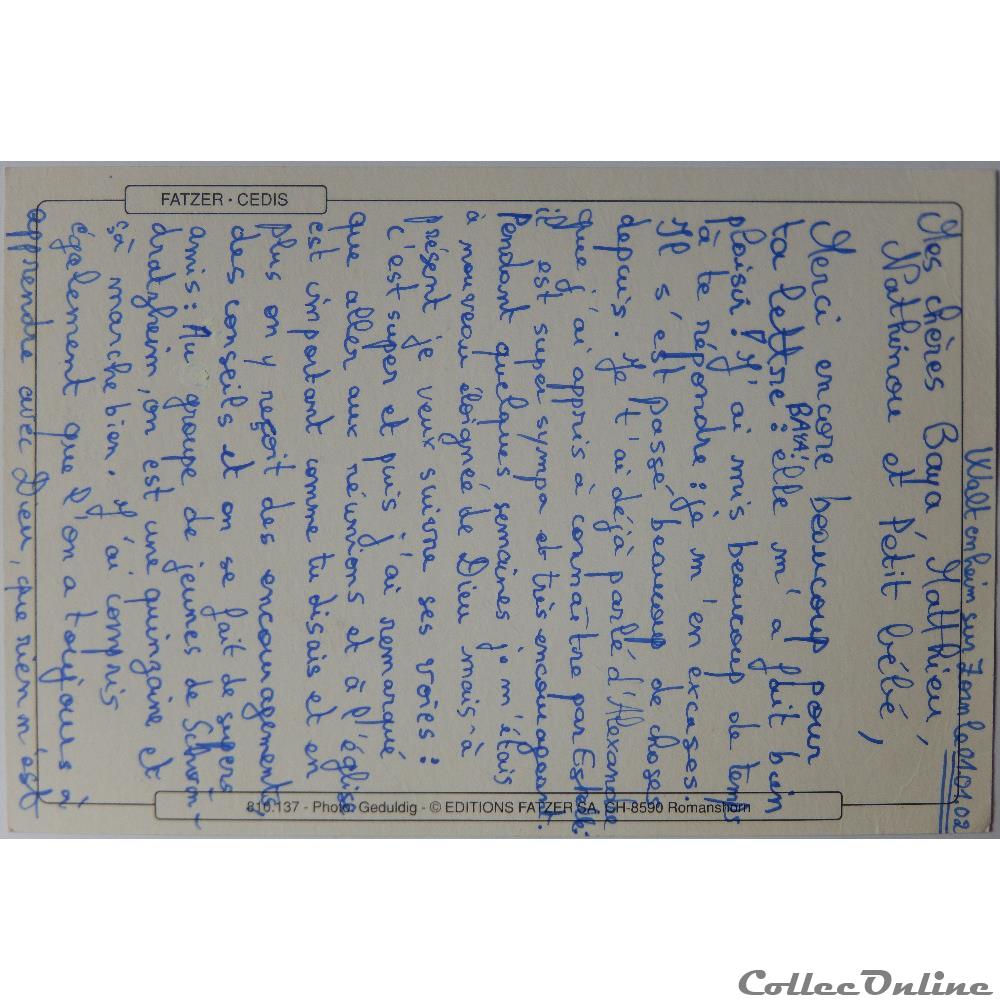 Waltenheim sur Zorn le 11.01.02
Mes chères Baya, Matthieu,
Nathinou et Petit bébé,
Merci encore beaucoup pour
ta lettre BAYA! elle m'a fait bien
plaisir! J'ai mis beaucoup de temps
à te répondre: je m'en excuses.
Il s'est passé beaucoup de choses
depuis. Je t'ai déjà parlé d'Alexandre
que j'ai appris à connaître par Estelle:
il est super sympa et très encourageant.
Pendant quelques semaines je m'étais
à nouveau éloignée de Dieu mais à
présent je veux suivre ses voies:
c'est super et puis j'ai remarqué
que aller aux réunions et à l'église
est important comme tu disais et en
plus on y reçoit des encouragements,
des conseils et on se fait de supers
amis: Au groupe de jeunes de Schwin-
dratzheim, on est une quinzaine et
çà marche bien. J'ai compris
également que l'on a toujours à
apprendre avec Dieu, que rien n'est
FATZER · CEDIS
810.137 - Photo: Geduldig - © EDITIONS FATZER SA, CH-8590 Romanshorn
CollecOnline